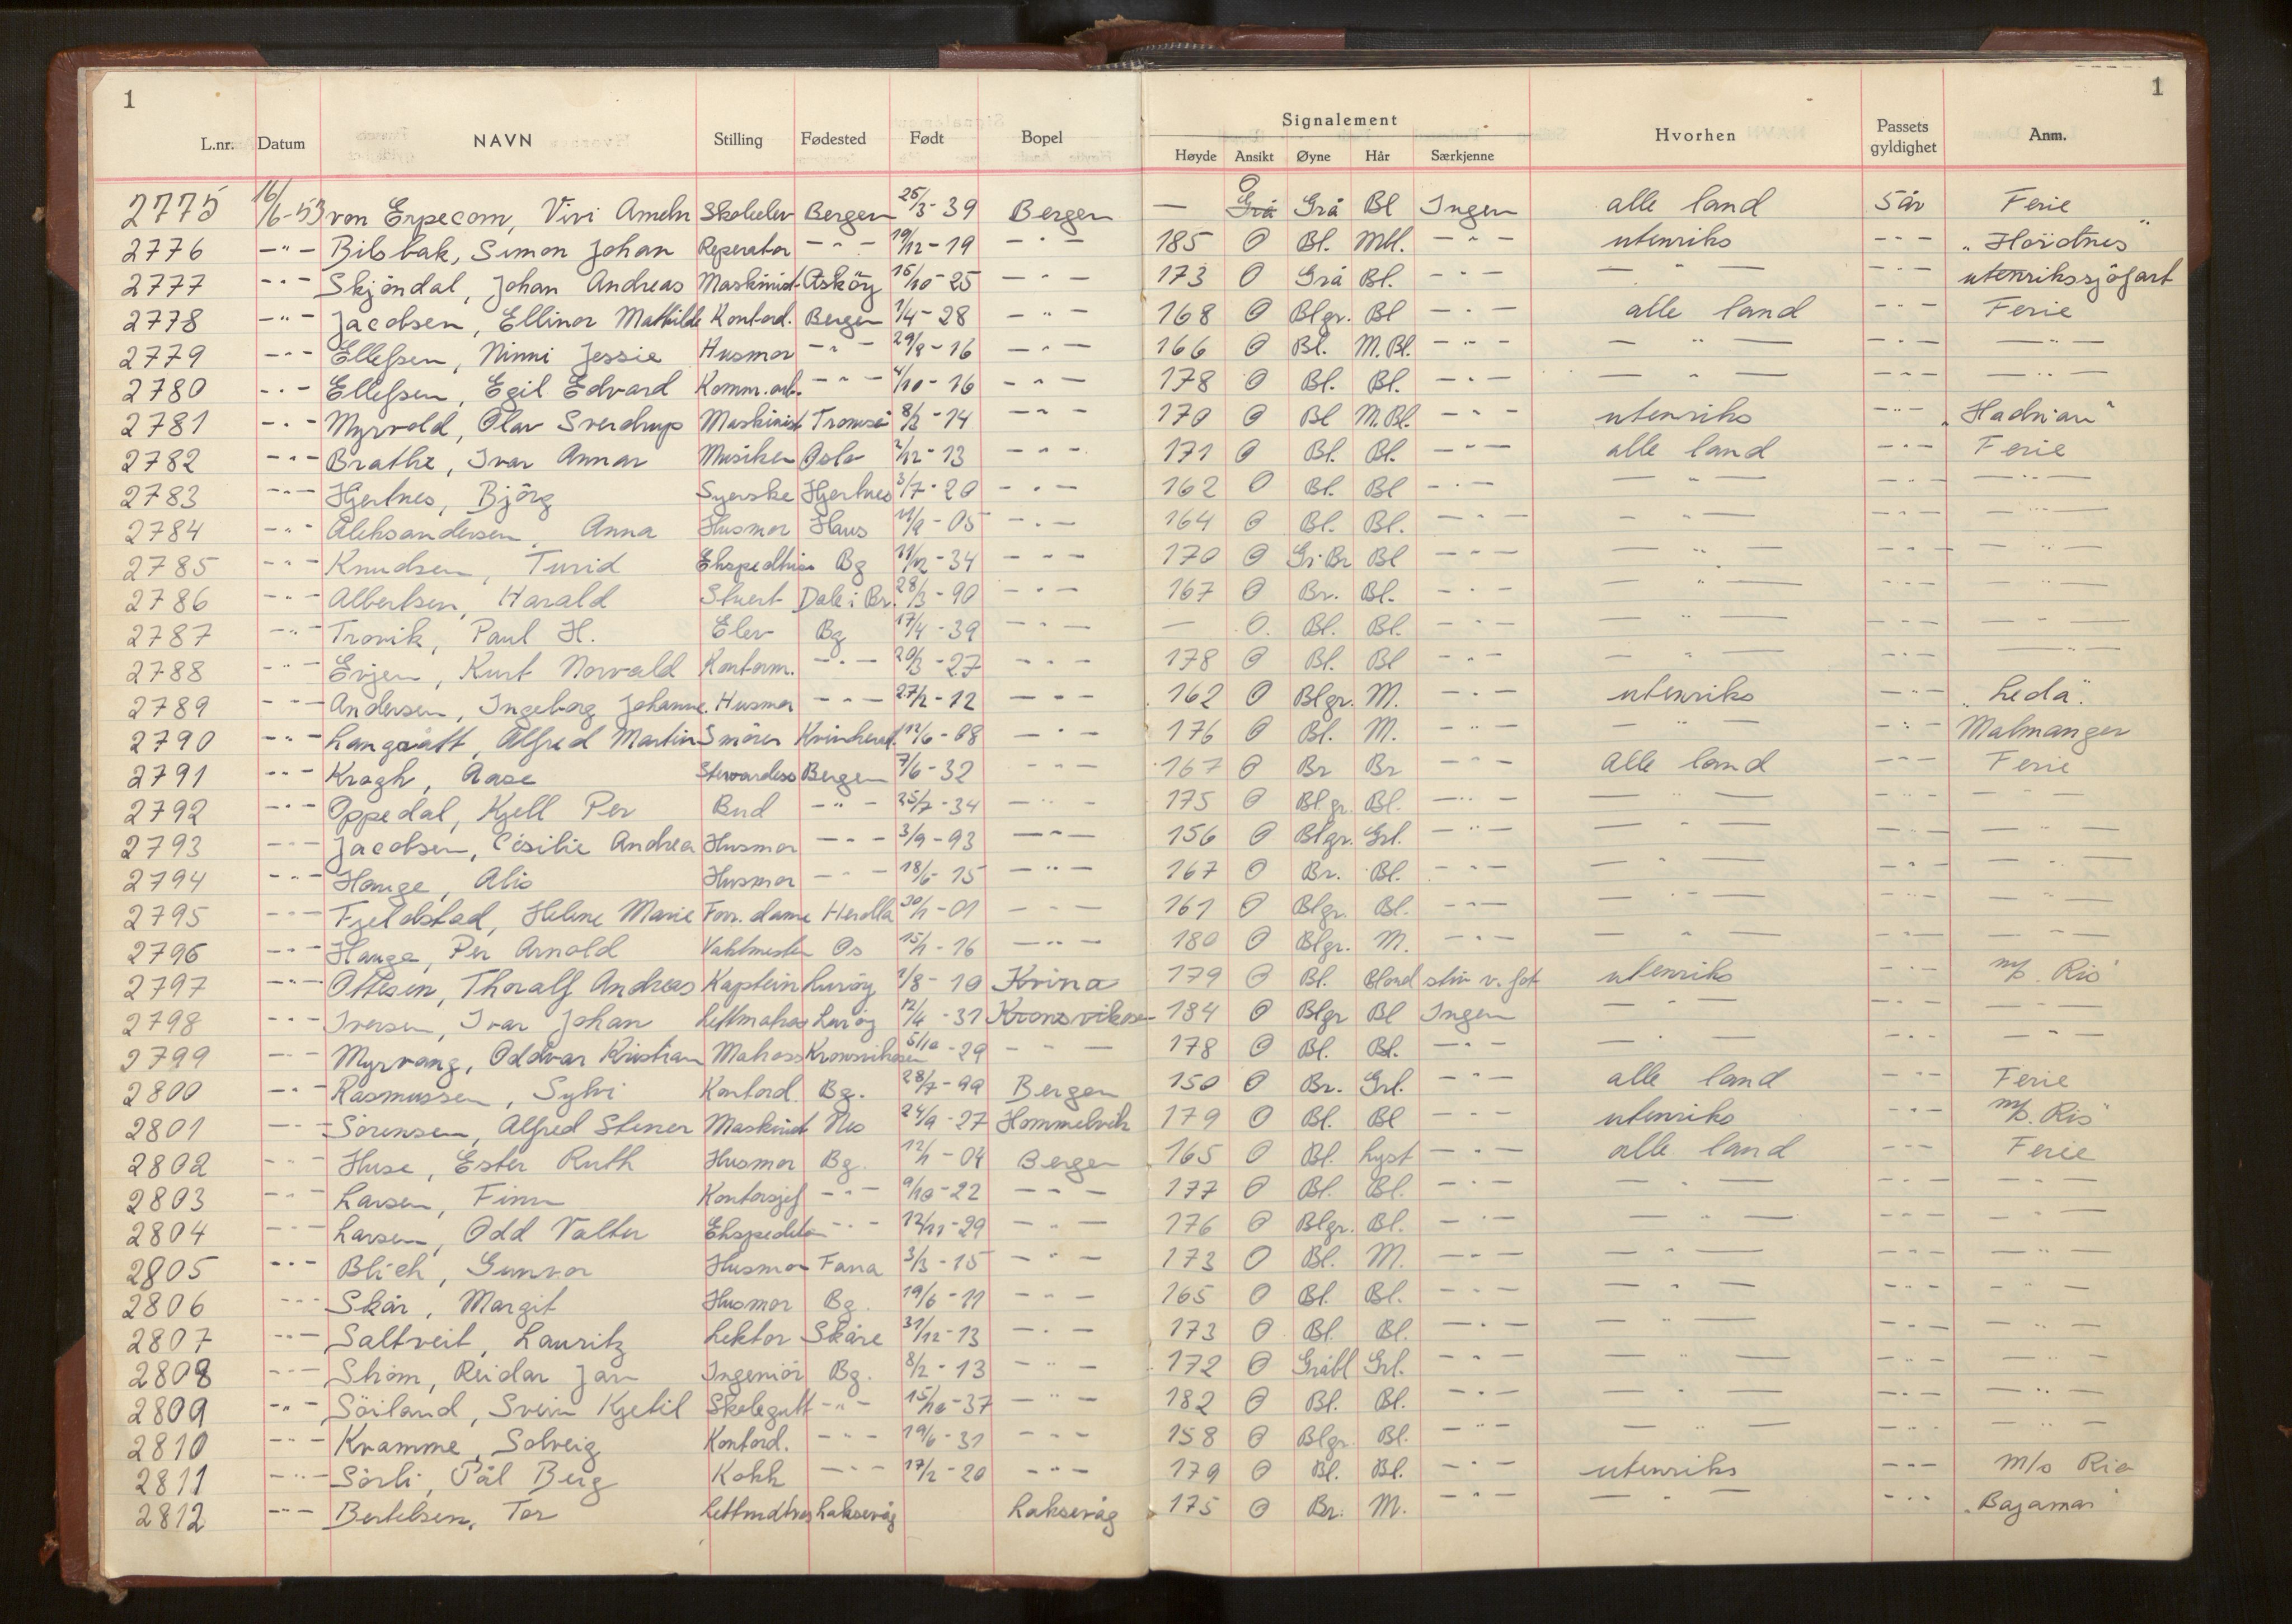 1 1
Signalement
L.nr. Datum NAVN Stilling Fødested Født Bopel Høyde Ansikt Øyne Hår Særkjenne Hvorhen Passets gyldighet Anm.
2775 16/6-53 von Erpecom, Vivi Skoleelev Bergen 26/3-39 Bergen — O Grå Bl Ingen alle land 5 år Ferie
2776 -"- Bilsbak, Simon Johan Reperatør -"- 19/12-19 -"- 185 O Bl. Mbl. -"- utenriks -"-
2777 -"- Skjøndal, Johan Andreas Maskinist Askøy 15/10-25 -"- 173 O Grå Bl. -"- -"- -"- utenrikssjøfart
2778 -"- Jacobsen, Ellinor Mathilde Kontord. Bergen 1/4-28 -"- 168 O Blgr. Bl -"- alle land -"- Ferie
2779 -"- Ellefsen, Ninni Jessie Husmor -"- 29/9-16 -"- 166 O Bl. M.Bl. -"- -"- -"- -"-
2780 -"- Ellefsen, Egil Edvard Komm.arb. -"- 4/10-16 -"- 178 O Bl. Bl. -"- -"- -"- -"-
2781 -"- Myrvold, Olav Sverdrup Maskinist Tromsø -14 -"- 170 O Bl M.Bl. -"- utenriks -"- "Hadrian"
2782 -"- Brathe, Ivar Annar Musiker Oslo 2/12-13 -"- 171 O Bl. Bl. -"- alle land -"- Ferie
2783 -"- Hjertnes, Bjørg Syerske Hjertnes 3/7-20 -"- 162 O Bl. Bl -"- -"- -"- -"-
2784 -"- Aleksandersen, Anna Husmor Haus 11/9-05 -"- 164 O Bl. Bl. -"- -"- -"- -"-
2785 -"- Knudsen, Turid Ekspeditrise Bg 11/12-34 -"- 170 O Gr.Br Bl -"- -"- -"- -"-
2786 -"- Albertsen, Harald Stuert Dale i Br. 28/3-90 -"- 167 O Br. Bl. -"- -"- -"- -"-
2787 -"- Trovik, Paul H. Elev Bg 17/4-39 -"- — O. Bl. Bl. -"- -"- -"- -"-
2788 -"- Evjen, Kurt Norvald Kontorm. -"- 20/3-27 -"- 178 O Bl. Bl -"- -"- -"- -"-
2789 -"- Andersen, Ingeborg Johanne Husmor -"- 27/2-12 -"- 162 O Blgr. M. -"- utenriks -"- "Leda"
2790 -"- Langaatt, Alfred Martin Smører Kvinherad. 12/6-08 -"- 176 O Bl. M. -"- -"- -"- Malmanger
2791 -"- Kragh, Aase Stewardess Bergen 7/6-32 -"- 167 O Br Br -"- Alle land -"- Ferie
2792 -"- Oppedal, Kjell Per Bud -"- 25/7-34 -"- 175 O Bl.gr. Bl. -"- -"- -"- -"-
2793 -"- Jacobsen, Cesilie Andrea Husmor -"- 3/9-93 -"- 156 O Blgr. Grl. -"- -"- -"- -"-
2794 -"- Hauge, Alis Husmor -"- 18/5-15 -"- 167 O Br. Bl. -"- -"- -"- -"-
2795 -"- Fjeldstad, Helene Marie Forr.dame Herdla 30/1-01 -"- 161 O Blgr. Bl. -"- -"- -"- -"-
2796 -"- Hauge, Per Arnold Vaktmester Os 15/1-16 -"- 180 O Blgr. M. -"- -"- -"- -"-
2797 -"- Ottesen, Thoralf Andreas Kaptein Lurøy 2/8-10 Kvina 179 O Bl. Blond stiv v. fot utenriks -"- m/s. Rio"
2798 -"- Iversen, Ivar Johan Lettmatros Lurøy 12/4-31 184 O Blgr Bl Ingen -"- -"- -"-
2799 -"- Myrvang, Oddvar Kristian Matros 5/10-29 -"- 178 O Bl. Bl. -"- -"- -"- -"-
2800 -"- Rasmussen, Sylvi Kontord. Bg. 28/7-99 Bergen 150 O Br. Grl. -"- alle land -"- Ferie
2801 -"- Sørensen, Alfred Steiner Maskinist Nes 24/9-27 Hommelvik 179 O Bl. Bl -"- utenriks -"- m/s. Rio"
2802 -"- Huse, Ester Ruth Husmor Bg. 12/1-04 Bergen 165 O Bl. Lyst -"- alle land -"- Ferie
2803 -"- Larsen, Finn Kontorsjef -"- 9/10-22 -"- 177 O Bl. Bl. -"- -"- -"- -"-
2804 -"- Larsen, Odd Valter Ekspeditør -"- 12/11-29 -"- 176 O Blgr. Bl. -"- -"- -"- -"-
2805 -"- Blich, Gunvor Husmor Fana 3/3-15 -"- 173 O Bl. M. -"- -"- -"- -"-
2806 -"- Skår, Margit Husmor Bg. 19/6-11 -"- 165 O Bl. Bl. -"- -"- -"- -"-
2807 -"- Saltveit, Lauritz Lektor Skåre 31/12-13 -"- 173 O Bl. Bl. -"- -"- -"- -"-
2808 -"- Strøm, Reidar Jan Ingeniør Bg. 8/2-13 -"- 172 O Gråbl Grl. -"- -"- -"- -"-
2809 -"- Søiland, Svein Kjetil Skolegutt -"- 15/10-37 -"- 182 O Bl. Bl. -"- -"- -"- -"-
2810 -"- Kvamme, Solveig Kontord. -"- 19/6-31 -"- 158 O Blgr. Bl. -"- -"- -"- -"-
2811 -"- Sørli, Pål Berg Kokk -"- 17/2-20 -"- 179 O Bl. Bl. -"- utenriks -"- M/s Rio
2812 -"- Bertelsen, Tor Lettmatros Laksevåg Laksevåg 175 O Br. M. -"- -"- -"- "Bajamar"